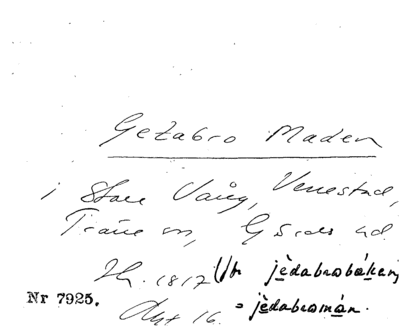 Getabro Maden
i Stora Vång, Vennestad,
Träne sn, Gärds hd
Sk. 1817 Utt jèdabrobákan
Nr 7925. Akt 16. = jèdabromán.